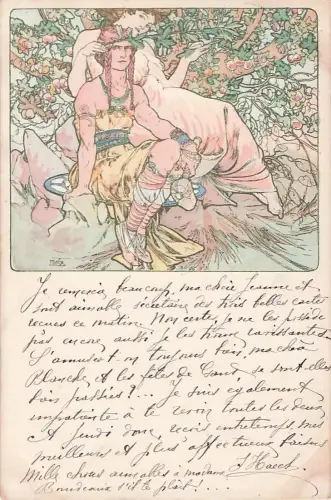 Mucha
Je remercie beaucoup, ma chère Jeanne et
son aimable secrétaire des trois belles cartes
reçues ce matin. Non certe, je ne les possède
pas encore aussi! je les trouve ravissantes.
S'amusent-on toujours bien, ma chère
Blanche et les fêtes de Gand se sont-elles
bien passées?... Je suis également
impatiente à te revoir toutes les deux
A jeudi donc, reçois entretemps, mes
meilleurs et plus affectueux baisers
Mille choses aimables à madame
Bordeaux s'il te plaît!...